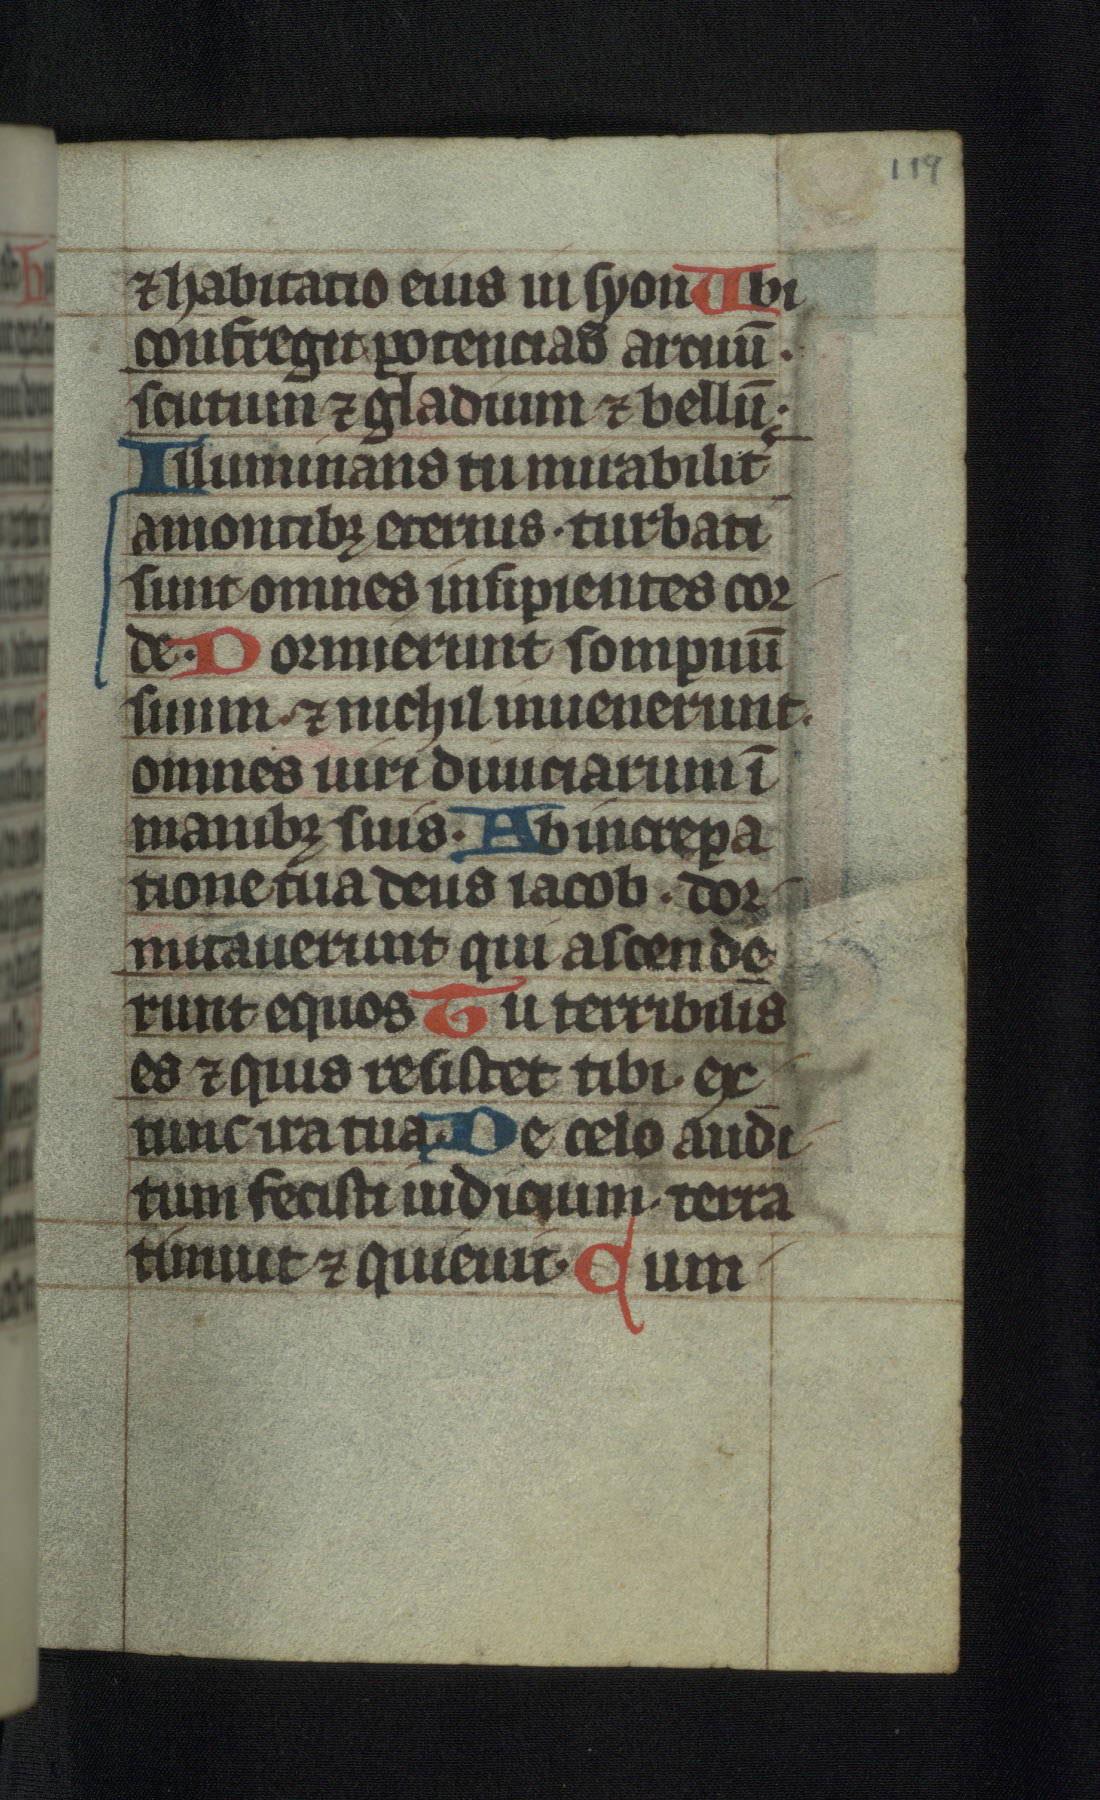 119
⁊ habitatio eius in syon Vbi
confregit potencias arcuū ·
scutum ⁊ gladium ⁊ bellū ·
Illuminans tu mirabilit᷑
amontibꝫ eternis · turbati
sunt omnes insipientes cor
de · Dormierunt sompnū
suum · ⁊ nichil inuenerunt ·
omnes uiri diuiciarum ī
manibꝫ suis · Ab increpa
tione tua deus iacob · dor
mitauerunt qui ascende
runt equos Tu terribilis
es ⁊ quis resistet tibi · ex
tunc ira tua · De celo audi
tum fecisti iudicium · terra
timuit ⁊ quieuit · Cum